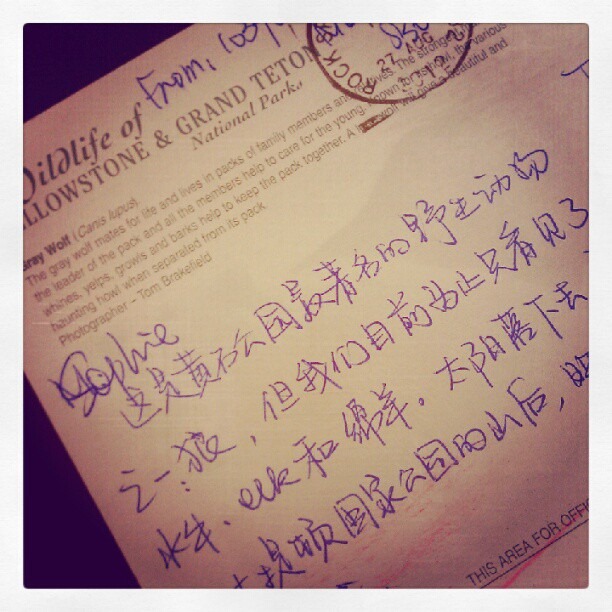 From,
ROCK
27 AUG
Wildlife of
YELLOWSTONE & GRAND TETON
National Parks
Gray Wolf (Canis lupus)
The gray wolf mates for life and lives in packs of family members and
the leader of the pack and all the members help to care for the young.
whines, yelps, growls and barks help to keep the pack together. A
haunting howl when separated from its pack.
Photographer – Tom Brakefield
Sophie
这是黄石公园最著名的野生动物
之一:狼,但我们目前为止只看见了
水牛、elk和绵羊。太阳落下去
大提顿国家公园的山后,明
THIS AREA FOR OFFI